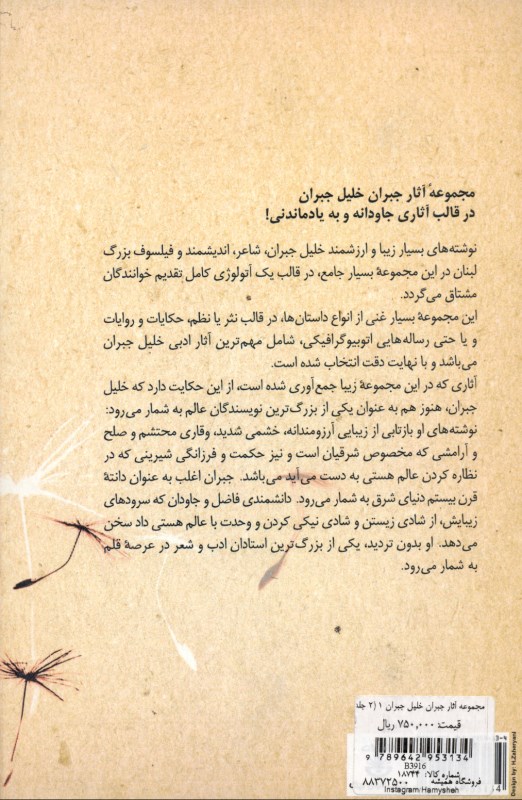 مجموعهٔ آثار جبران خلیل جبران
در قالب آثاری جاودانه و به یادماندنی!
نوشته‌های بسیار زیبا و ارزشمند خلیل جبران، شاعر، اندیشمند و فیلسوف بزرگ
لبنان در این مجموعهٔ بسیار جامع، در قالب یک آتولوژی کامل تقدیم خوانندگان
مشتاق می‌گردد.
این مجموعهٔ بسیار غنی از انواع داستان‌ها، در قالب نثر یا نظم، حکایات و روایات
و یا حتی رساله‌هایی اتوبیوگرافیکی، شامل مهم‌ترین آثار ادبی خلیل جبران
می‌باشد و با نهایت دقت انتخاب شده است.
آثاری که در این مجموعهٔ زیبا جمع‌آوری شده است، از این حکایت دارد که خلیل
جبران، هنوز هم به عنوان یکی از بزرگ‌ترین نویسندگان عالم به شمار می‌رود:
نوشته‌های او بازتابی از زیبایی آرزومندانه، خشمی شدید، وقاری محتشم و صلح و
آرامشی که مخصوص شرقیان است و نیز حکمت و فرزانگی شیرینی که در
نظاره کردن عالم هستی به دست می‌آید می‌باشد. جبران اغلب به عنوان دانتهٔ
قرن بیستم دنیای شرق به شمار می‌رود. دانشمندی فاضل و جاودان که سرودهای
زیبایش، از شادی زیستن و شادی نیکی کردن و وحدت با عالم هستی داد سخن
می‌دهد. او بدون تردید، یکی از بزرگ‌ترین استادان ادب و شعر در عرصهٔ قلم
به شمار می‌رود.
مجموعه آثار جبران خلیل جبران ۱ (۲ جلد
قیمت: ۷۵۰,۰۰۰ ریال
9 789642 953134
B3916
شماره کالا: ۱۸۷۴۴
فروشگاه همیشه ۸۸۳۷۲۵۰۰
Instagram:Hamysheh
Design by: H.Zaheryani